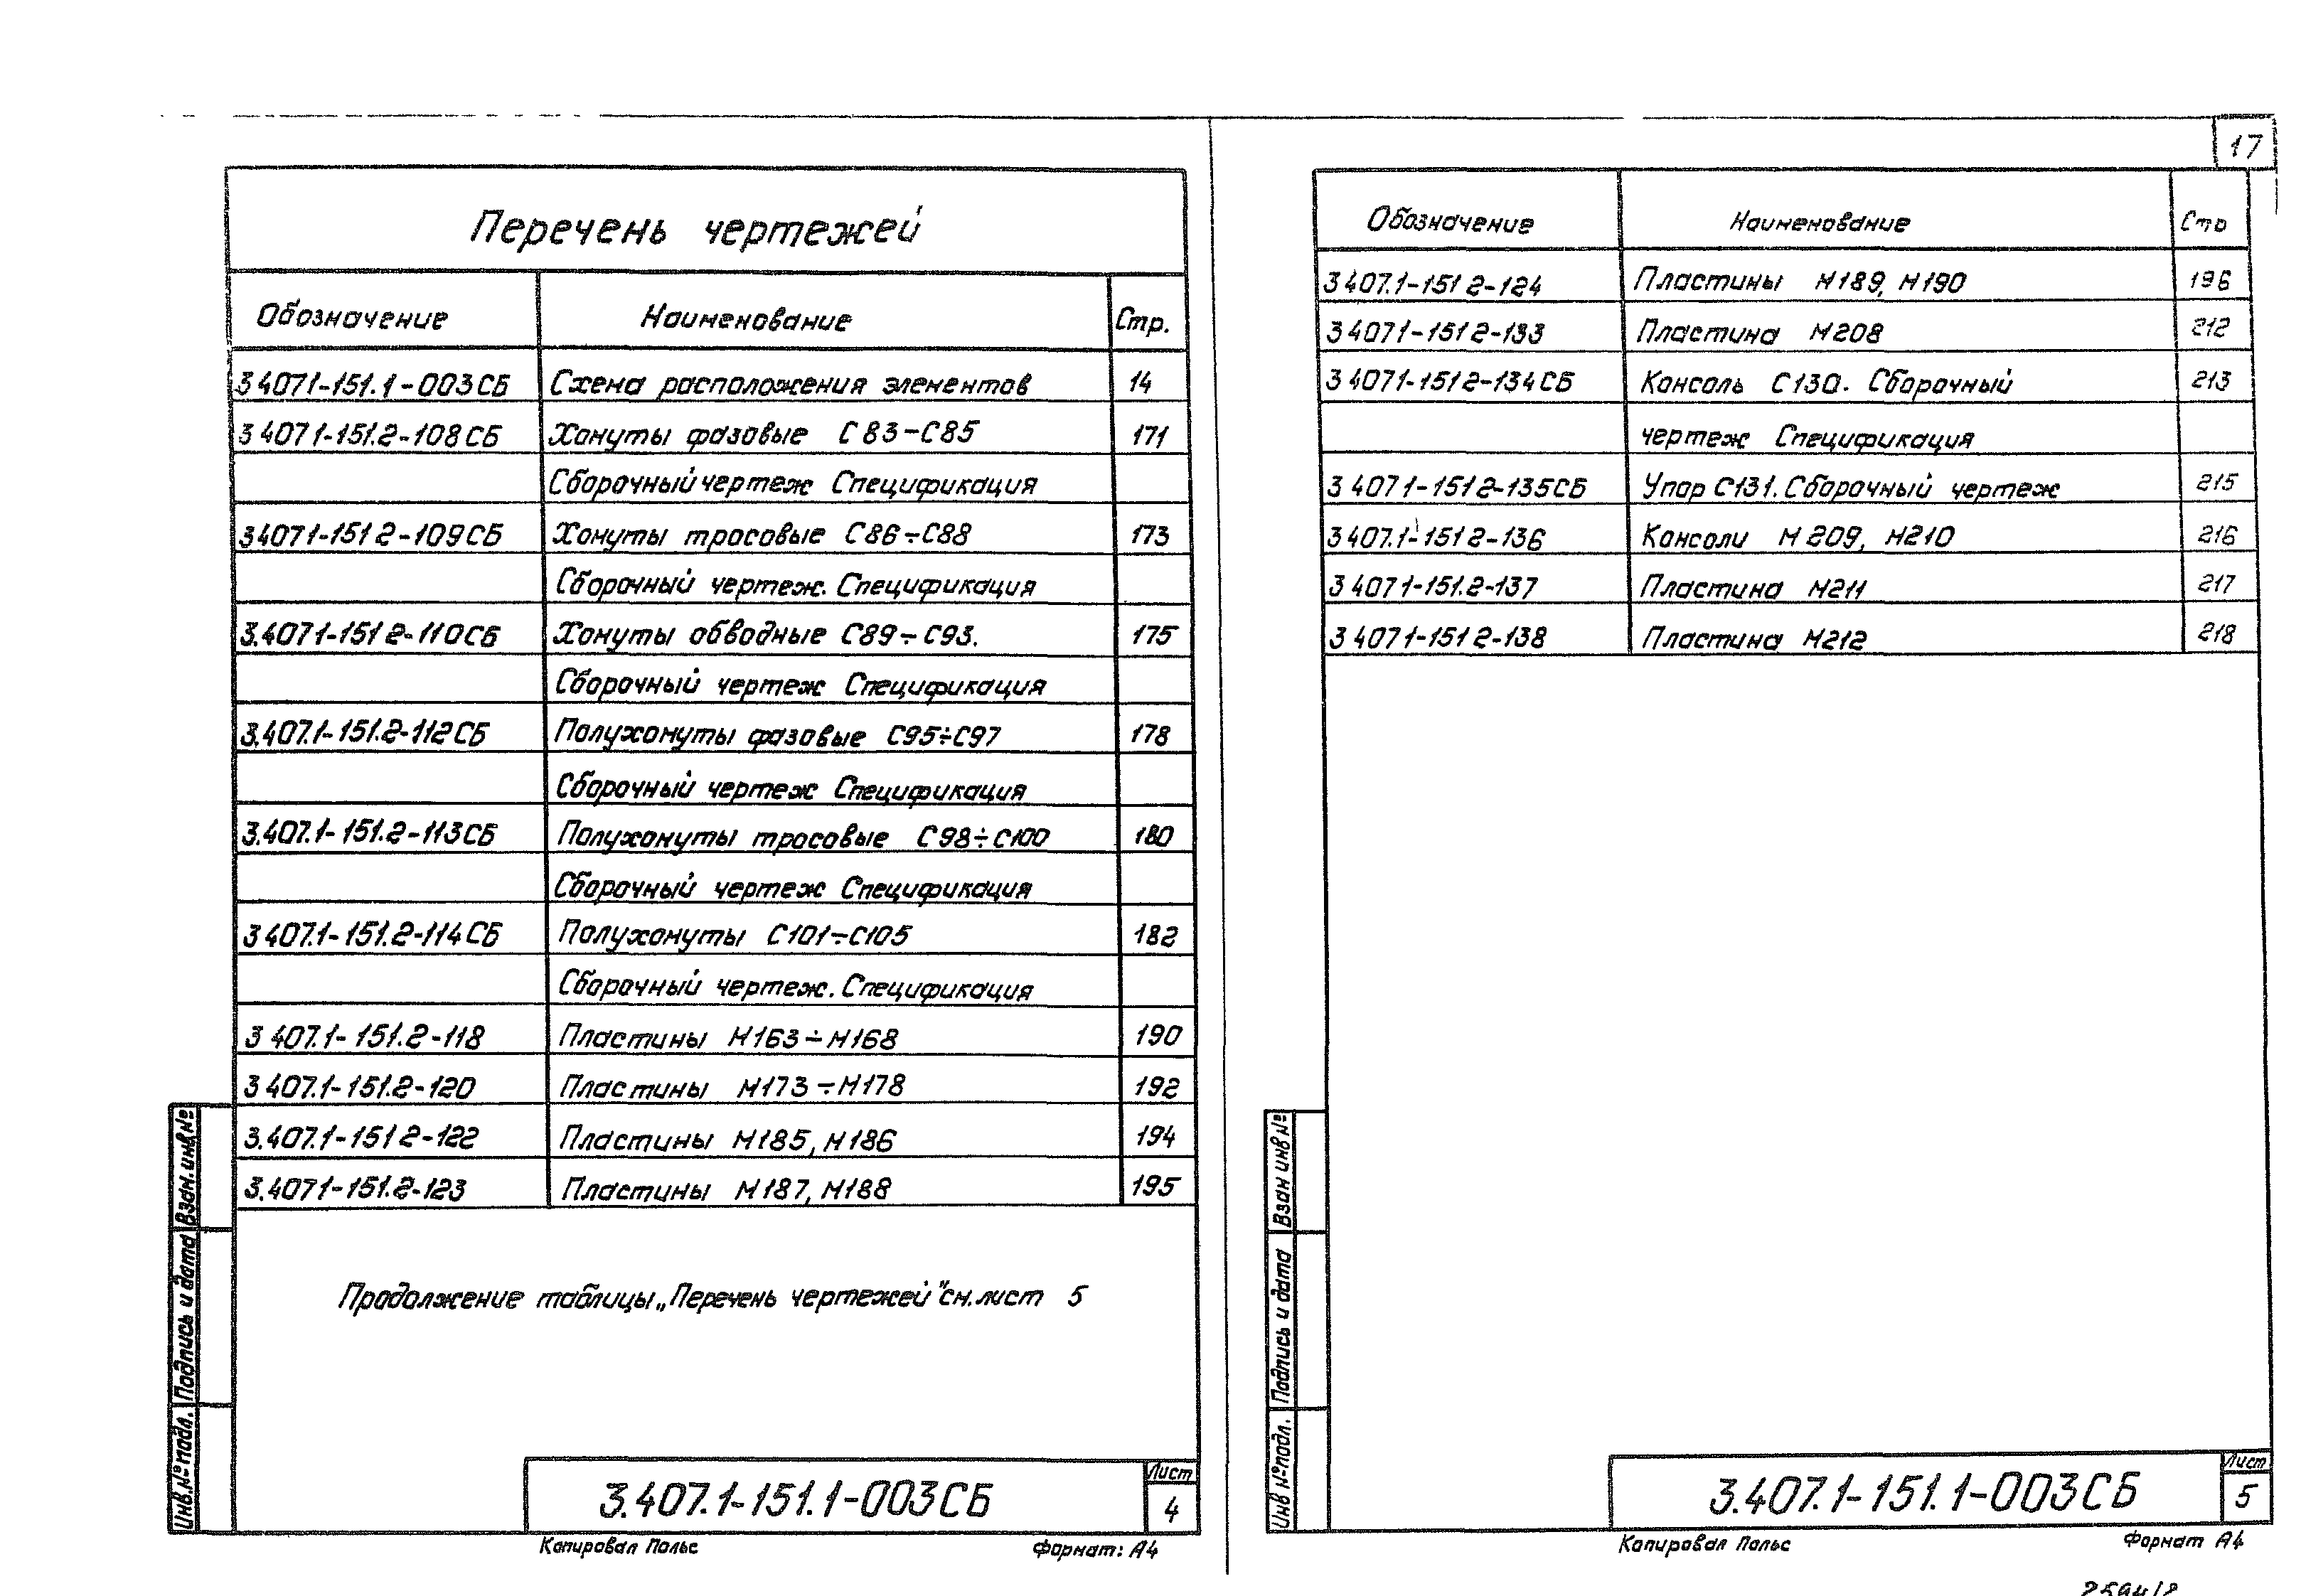 17
Перечень чертежей
Обозначение Наименование Стр.
3 4071-151.1-003СБ Схема расположения элементов 14
3 4071-151.2-108СБ Хомуты фазовые С83-С85 171
Сборочный чертеж Спецификация
34071-151 2-109СБ Хомуты тросовые С86÷С88 173
Сборочный чертеж. Спецификация
3.4071-151 2-110СБ Хомуты обводные С89÷С93. 175
Сборочный чертеж Спецификация
3.407.1-151.2-112СБ Полухомуты фазовые С95÷С97 178
Сборочный чертеж Спецификация
3.407.1-151.2-113СБ Полухомуты тросовые С98÷С100 180
Сборочный чертеж Спецификация
3 407.1-151.2-114СБ Полухомуты С101÷С105 182
Сборочный чертеж. Спецификация
3 407.1-151.2-118 Пластины М163÷М168 190
3 407.1-151.2-120 Пластины М173÷М178 192
3.407.1-151 2-122 Пластины М185, М186 194
3.4071-151.2-123 Пластины М187, М188 195
Продолжение таблицы „Перечень чертежей" см. лист 5
Взам. инв №
Подпись и дата
Инв. № подл.
3.407.1-151.1-003СБ
Лист
4
Копировал Польс Формат: А4
Обозначение Наименование Стр
3 407.1-151 2-124 Пластины М189, М190 196
3 4071-151 2-133 Пластина М208 212
3 4071-151 2-134СБ Консоль С130. Сборочный 213
чертеж Спецификация
3 4071-151 2-135СБ Упор С131. Сборочный чертеж 215
3 407.1-151 2-136 Консоли М209, М210 216
3 4071-151.2-137 Пластина М211 217
3 4071-151 2-138 Пластина М212 218
Взам инв №
Подпись и дата
Инв № подл.
3.407.1-151.1-003СБ
Лист
5
Копировал Польс Формат А4